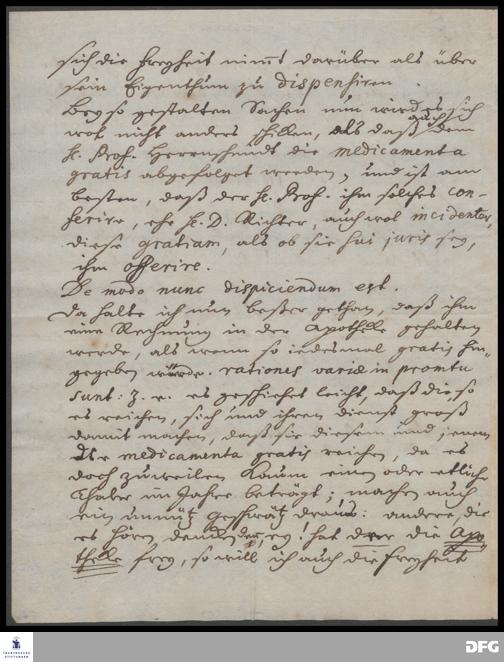 sich die Freyheit nimt darüber als über
sein Eigenthum zu dispensiren.
Bey so gestalten Sachen nun wird es sich
wol nicht anders schicken, als daß auch dem
H. Prof. Herrnschmidt die medicamenta
gratis abgefolget werden, und ist am
besten, daß der H. Prof. ihm solches con-
ferire, ehe H. D. Richter, auch wol incidenter,
diese gratiam, als ob sie sui juris sey,
ihm offerire.
De modo nunc dispiciendum est.
Da halte ich nun beßer gethan, daß ihm
eine Rechnung in der Apotheke gehalten
werde, als wenn so iedesmal gratis hin-
gegeben würde. rationes variæ in promtu
sunt: z. e. es geschiehet leicht, daß die, so
es reichen, sich und ihren dienst groß
damit machen, daß sie diesem und jenem
die medicamenta gratis reichen, da es
doch zuweilen kaum einen oder etliche
Thaler im Jahre beträgt; machen auch
ein unnütz geschwätz draus: andere, die
es hören, denken denn, ey! hat der die Apo-
theke frey, so will ich auch die Freyheit
FRANCKESCHE STIFTUNGEN
DFG